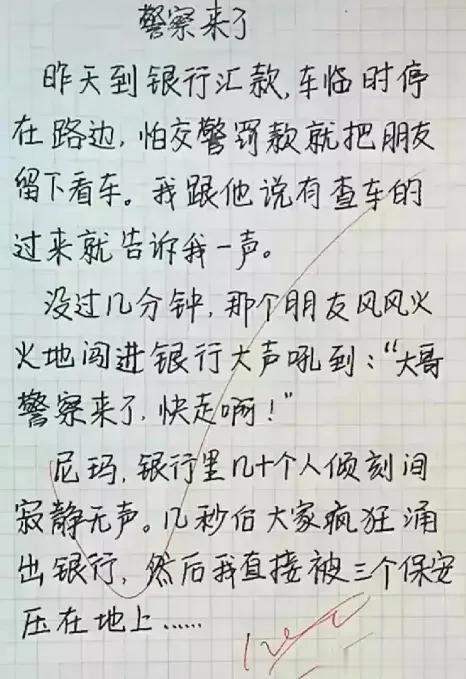 警察来了
昨天到银行汇款,车临时停
在路边,怕交警罚款就把朋友
留下看车。我跟他说有查车的
过来就告诉我一声。
没过几分钟,那个朋友风风火
火地闯进银行大声吼到:“大哥
警察来了,快走啊!”
尼玛,银行里几十个人倾刻间
寂静无声。几秒后大家疯狂涌
出银行,然后我直接被三个保安
压在地上……